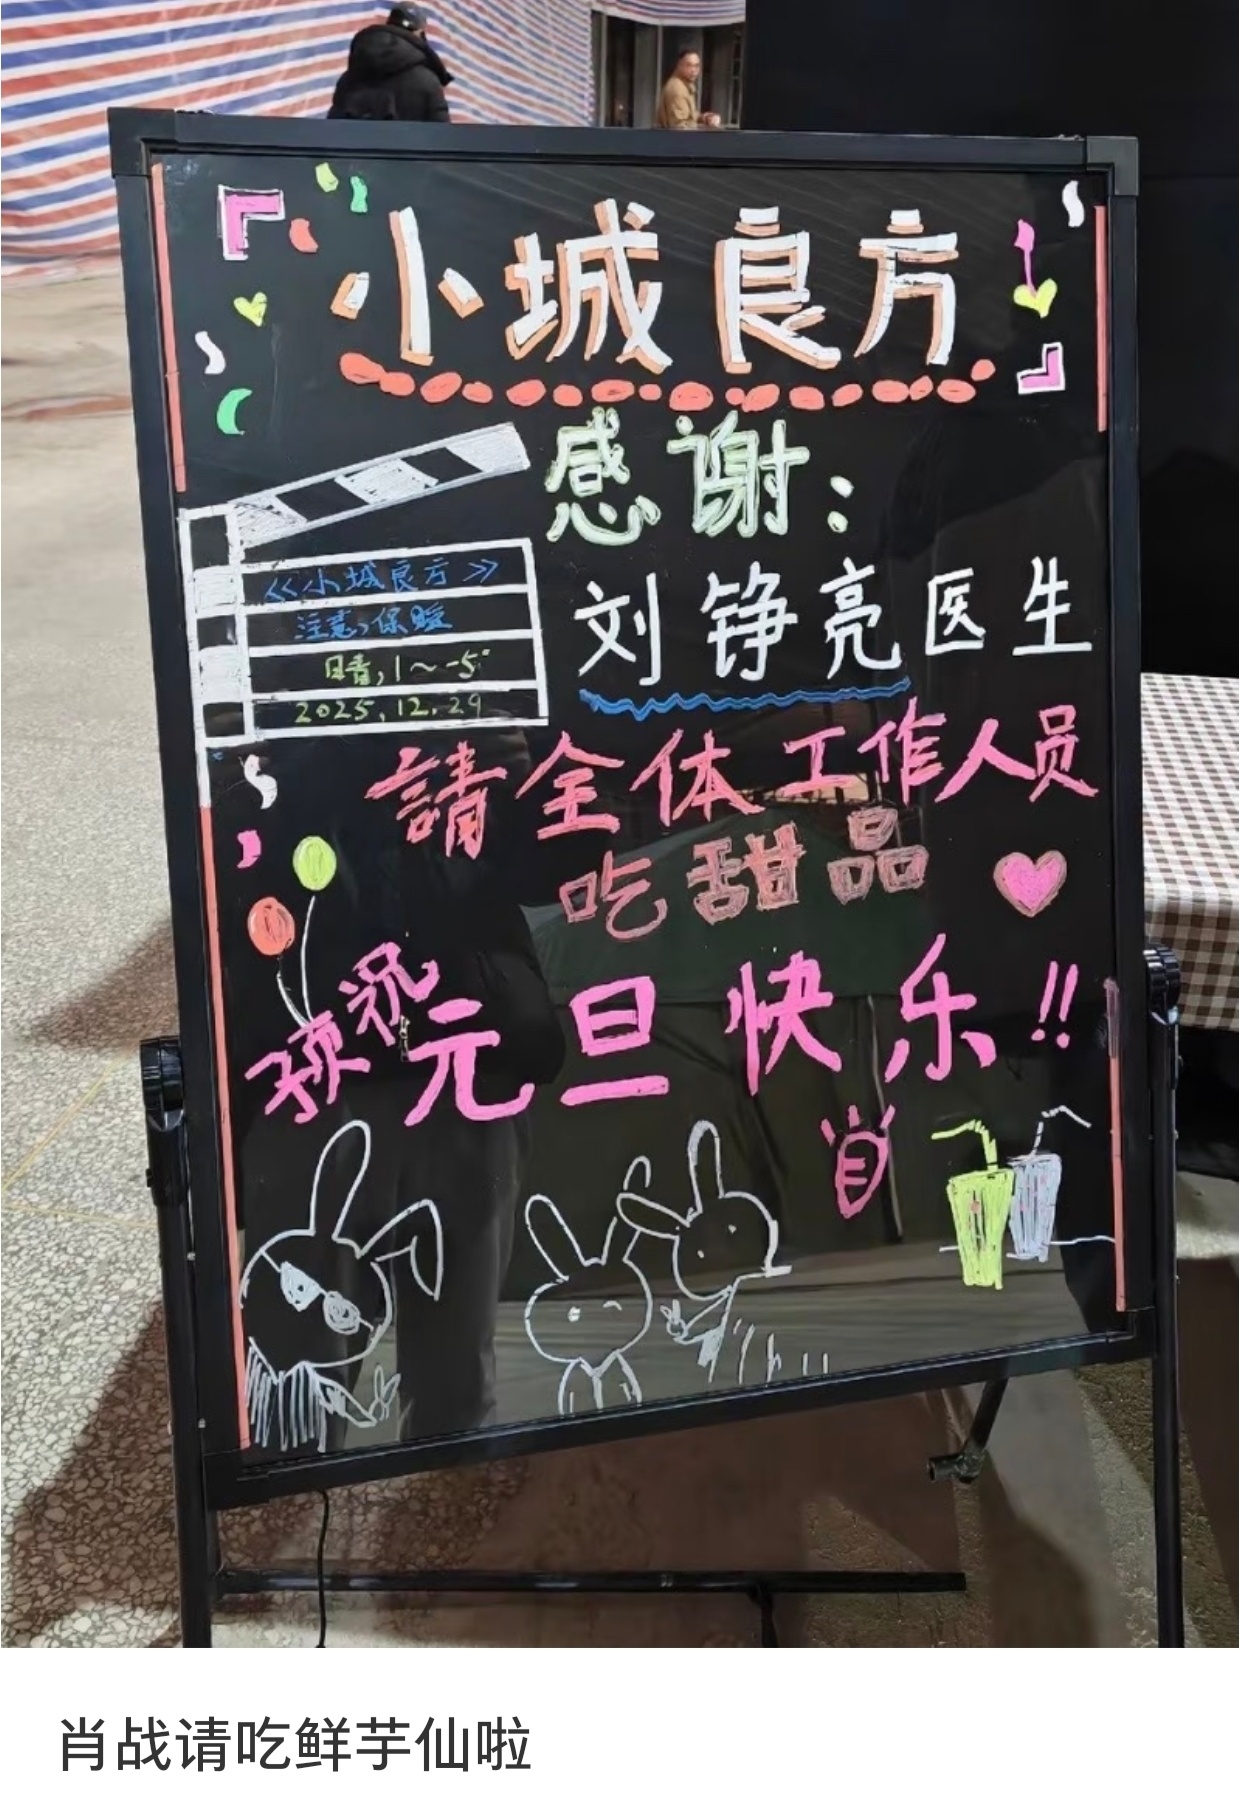 小城良方
感谢:
《小城良方》
注意,保暖
晴,1～-5°
2025.12.29
刘铮亮医生
請全体工作人员
吃甜品
预祝元旦快乐!!
肖战请吃鲜芋仙啦